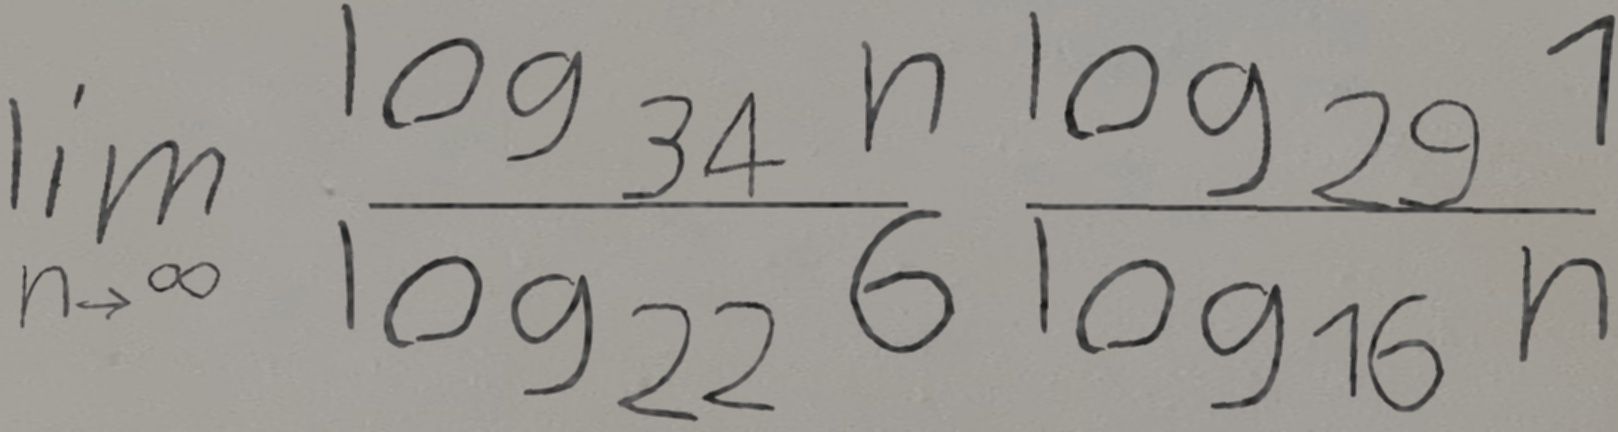 \lim_{n \to \infty} \frac{\log_{34} n}{\log_{22} 6} \frac{\log_{29} 1}{\log_{16} n}